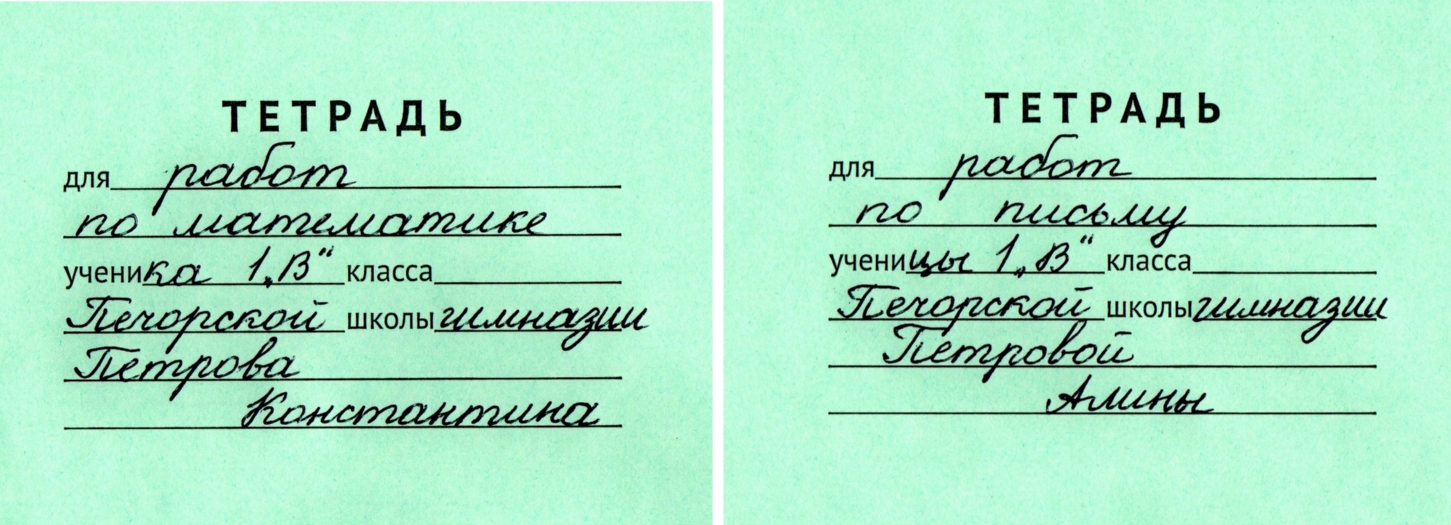 ТЕТРАДЬ
для работ
по математике
ученика 1 „В“ класса
Печорской школы гимназии
Петрова
Константина
ТЕТРАДЬ
для работ
по письму
ученицы 1 „В“ класса
Печорской школы гимназии
Петровой
Алины